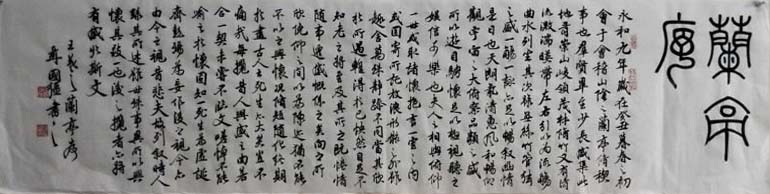 蘭亭
序
永和九年歲在癸丑暮春之初
會于會稽山陰之蘭亭脩稧
事也群賢畢至少長咸集此
地有崇山峻領茂林脩竹又有清
流激湍暎帶左右引以為流觴
曲水列坐其次雖無絲竹管弦
之盛一觴一詠亦足以暢敘幽情
是日也天朗氣清惠風和暢仰
觀宇宙之大俯察品類之盛
所以遊目騁懷足以極視聽之
娛信可樂也夫人之相與俯仰
一世或取諸懷抱悟言一室之內
或因寄所託放浪形骸之外雖
趣舍萬殊靜躁不同當其欣
於所遇暫得於己怏然自足不
知老之將至及其所之既惓情
隨事遷感慨係之矣向之所
欣俛仰之間以為陳迹猶不能
不以之興懷況脩短隨化終期
於盡古人云死生亦大矣豈不
痛哉每攬昔人興感之由若
合一契未嘗不臨文嗟悼不能
喻之於懷固知一死生為虛誕
齊彭殤為妄作後之視今亦
由今之視昔悲夫故列敘時人
錄其所述雖世殊事異所以興
懷其致一也後之攬者亦將
有感於斯文
王羲之蘭亭序
國強書